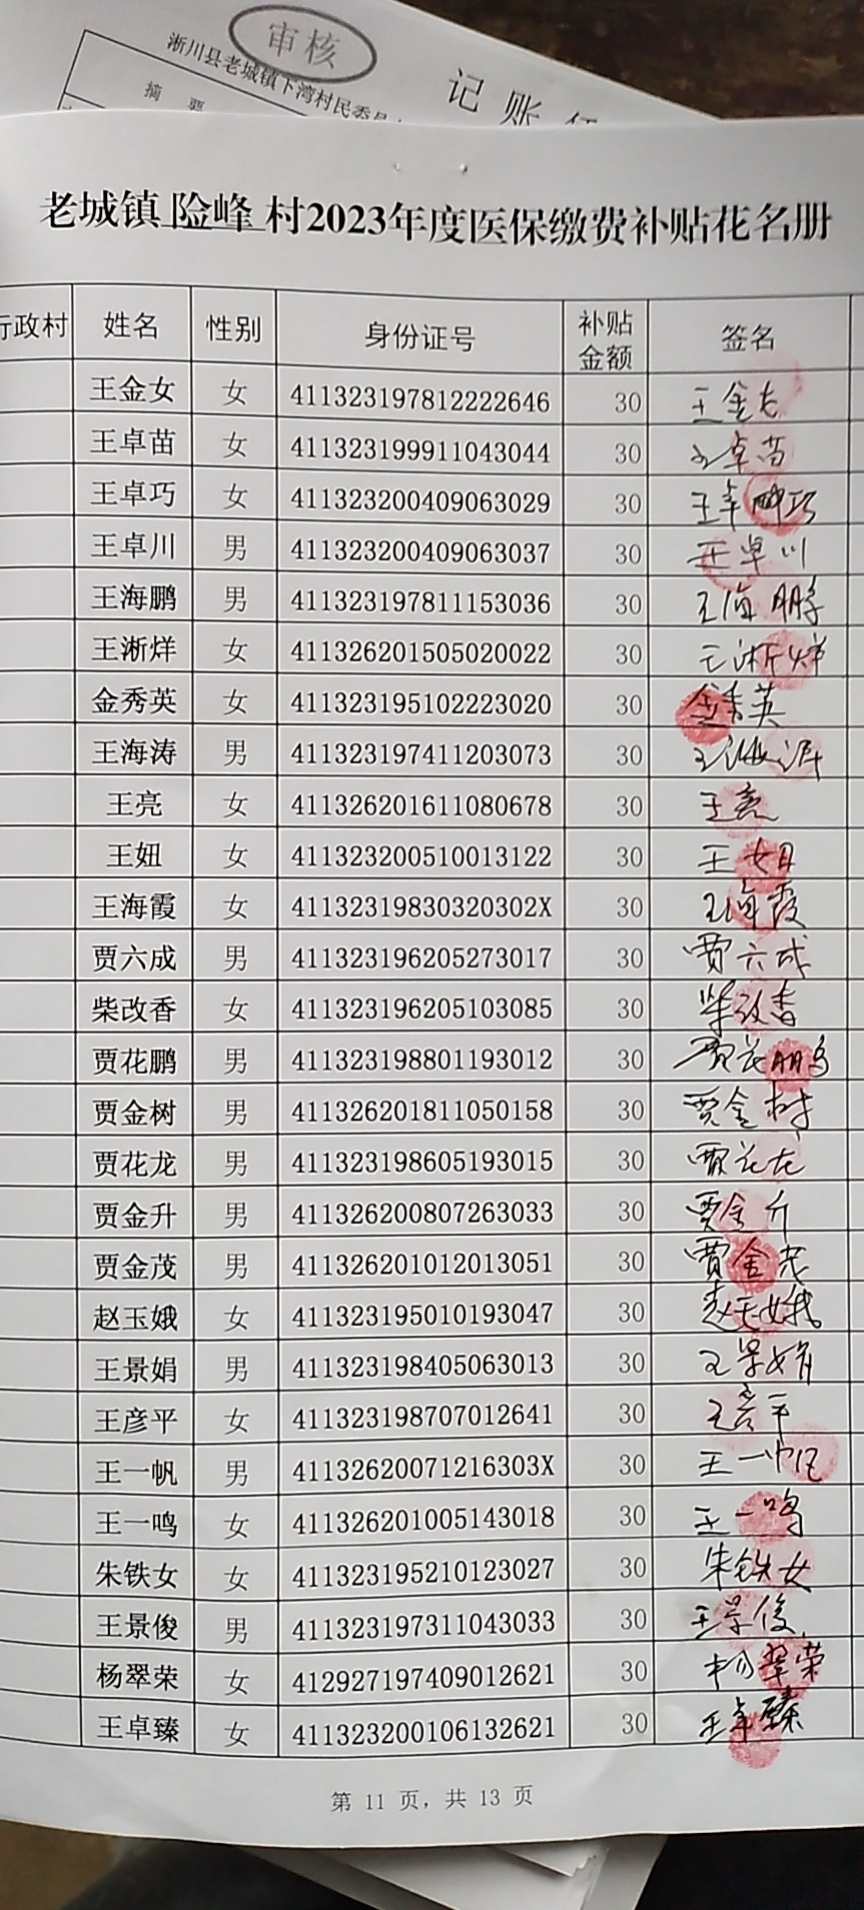 审核
淅川县老城镇下湾村民委员
记账
摘 要
老城镇 险峰 村2023年度医保缴费补贴花名册
行政村 姓名 性别 身份证号 补贴金额 签名
王金女 女 411323197812222646 30 王金女
王卓苗 女 411323199911043044 30 王卓苗
王卓巧 女 411323200409063029 30
王卓川 男 411323200409063037 30 王卓川
王海鹏 男 411323197811153036 30 王海鹏
王淅烊 女 411326201505020022 30 王淅烊
金秀英 女 411323195102223020 30 金秀英
王海涛 男 411323197411203073 30 王海涛
王亮 女 411326201611080678 30 王亮
王妞 女 411323200510013122 30
王海霞 女 41132319830320302X 30 王海霞
贾六成 男 411323196205273017 30 贾六成
柴改香 女 411323196205103085 30 柴改香
贾花鹏 男 411323198801193012 30 贾花鹏
贾金树 男 411326201811050158 30 贾金树
贾花龙 男 411323198605193015 30 贾花龙
贾金升 男 411326200807263033 30 贾金升
贾金茂 男 411326201012013051 30 贾金茂
赵玉娥 女 411323195010193047 30 赵玉娥
王景娟 男 411323198405063013 30 王景娟
王彦平 女 411323198707012641 30 王彦平
王一帆 男 41132620071216303X 30 王一帆
王一鸣 女 411326201005143018 30 王一鸣
朱铁女 女 411323195210123027 30 朱铁女
王景俊 男 411323197311043033 30 王景俊
杨翠荣 女 412927197409012621 30 杨翠荣
王卓臻 女 411323200106132621 30 王卓臻
第 11 页，共 13 页